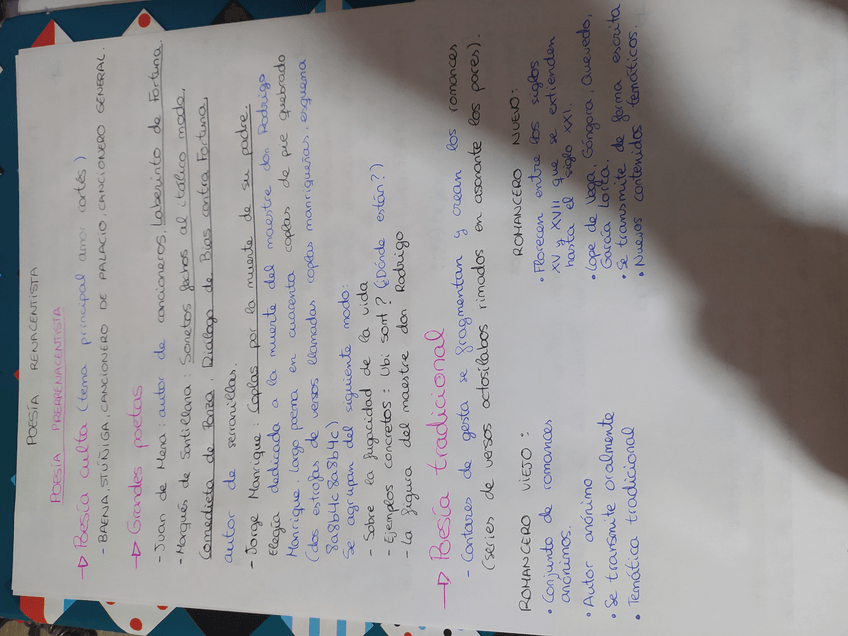 POESÍA RENACENTISTA
POESÍA PRERRENACENTISTA
→ Poesía culta (tema principal amor cortés)
- BAENA, STUÑIGA, CANCIONERO DE PALACIO, CANCIONERO GENERAL.
→ Grandes poetas
- Juan de Mena: autor de cancioneros, Laberinto de Fortuna.
- Marqués de Santillana: Sonetos fechos al itálico modo,
Comedieta de Ponza, Diálogo de Bias contra Fortuna,
autor de serranillas.
- Jorge Manrique: Coplas por la muerte de su padre.
Elegía dedicada a la muerte del maestre don Rodrigo
Manrique. Largo poema en cuarenta coplas de pie quebrado
(dos estrofas de versos llamadas coplas manriqueñas, esquema
8a8b4c8a8b4c)
Se agrupan del siguiente modo:
- Sobre la fugacidad de la vida
- Ejemplos concretos: Ubi sont? (¿Dónde están?)
- La figura del maestre don Rodrigo
→ Poesía tradicional
- Cantares de gesta se fragmentan y crean los romances
(series de versos octosílabos rimados en asonante los pares).
ROMANCERO VIEJO:
• Conjunto de romances
anónimos.
• Autor anónimo
• Se transmite oralmente
• Temática tradicional
ROMANCERO NUEVO:
• Florecen entre los siglos
XV y XVII que se extienden
hasta el siglo XXI.
• Lope de Vega, Góngora, Quevedo,
García Lorca.
• Se transmite de forma escrita
• Nuevos contenidos temáticos.